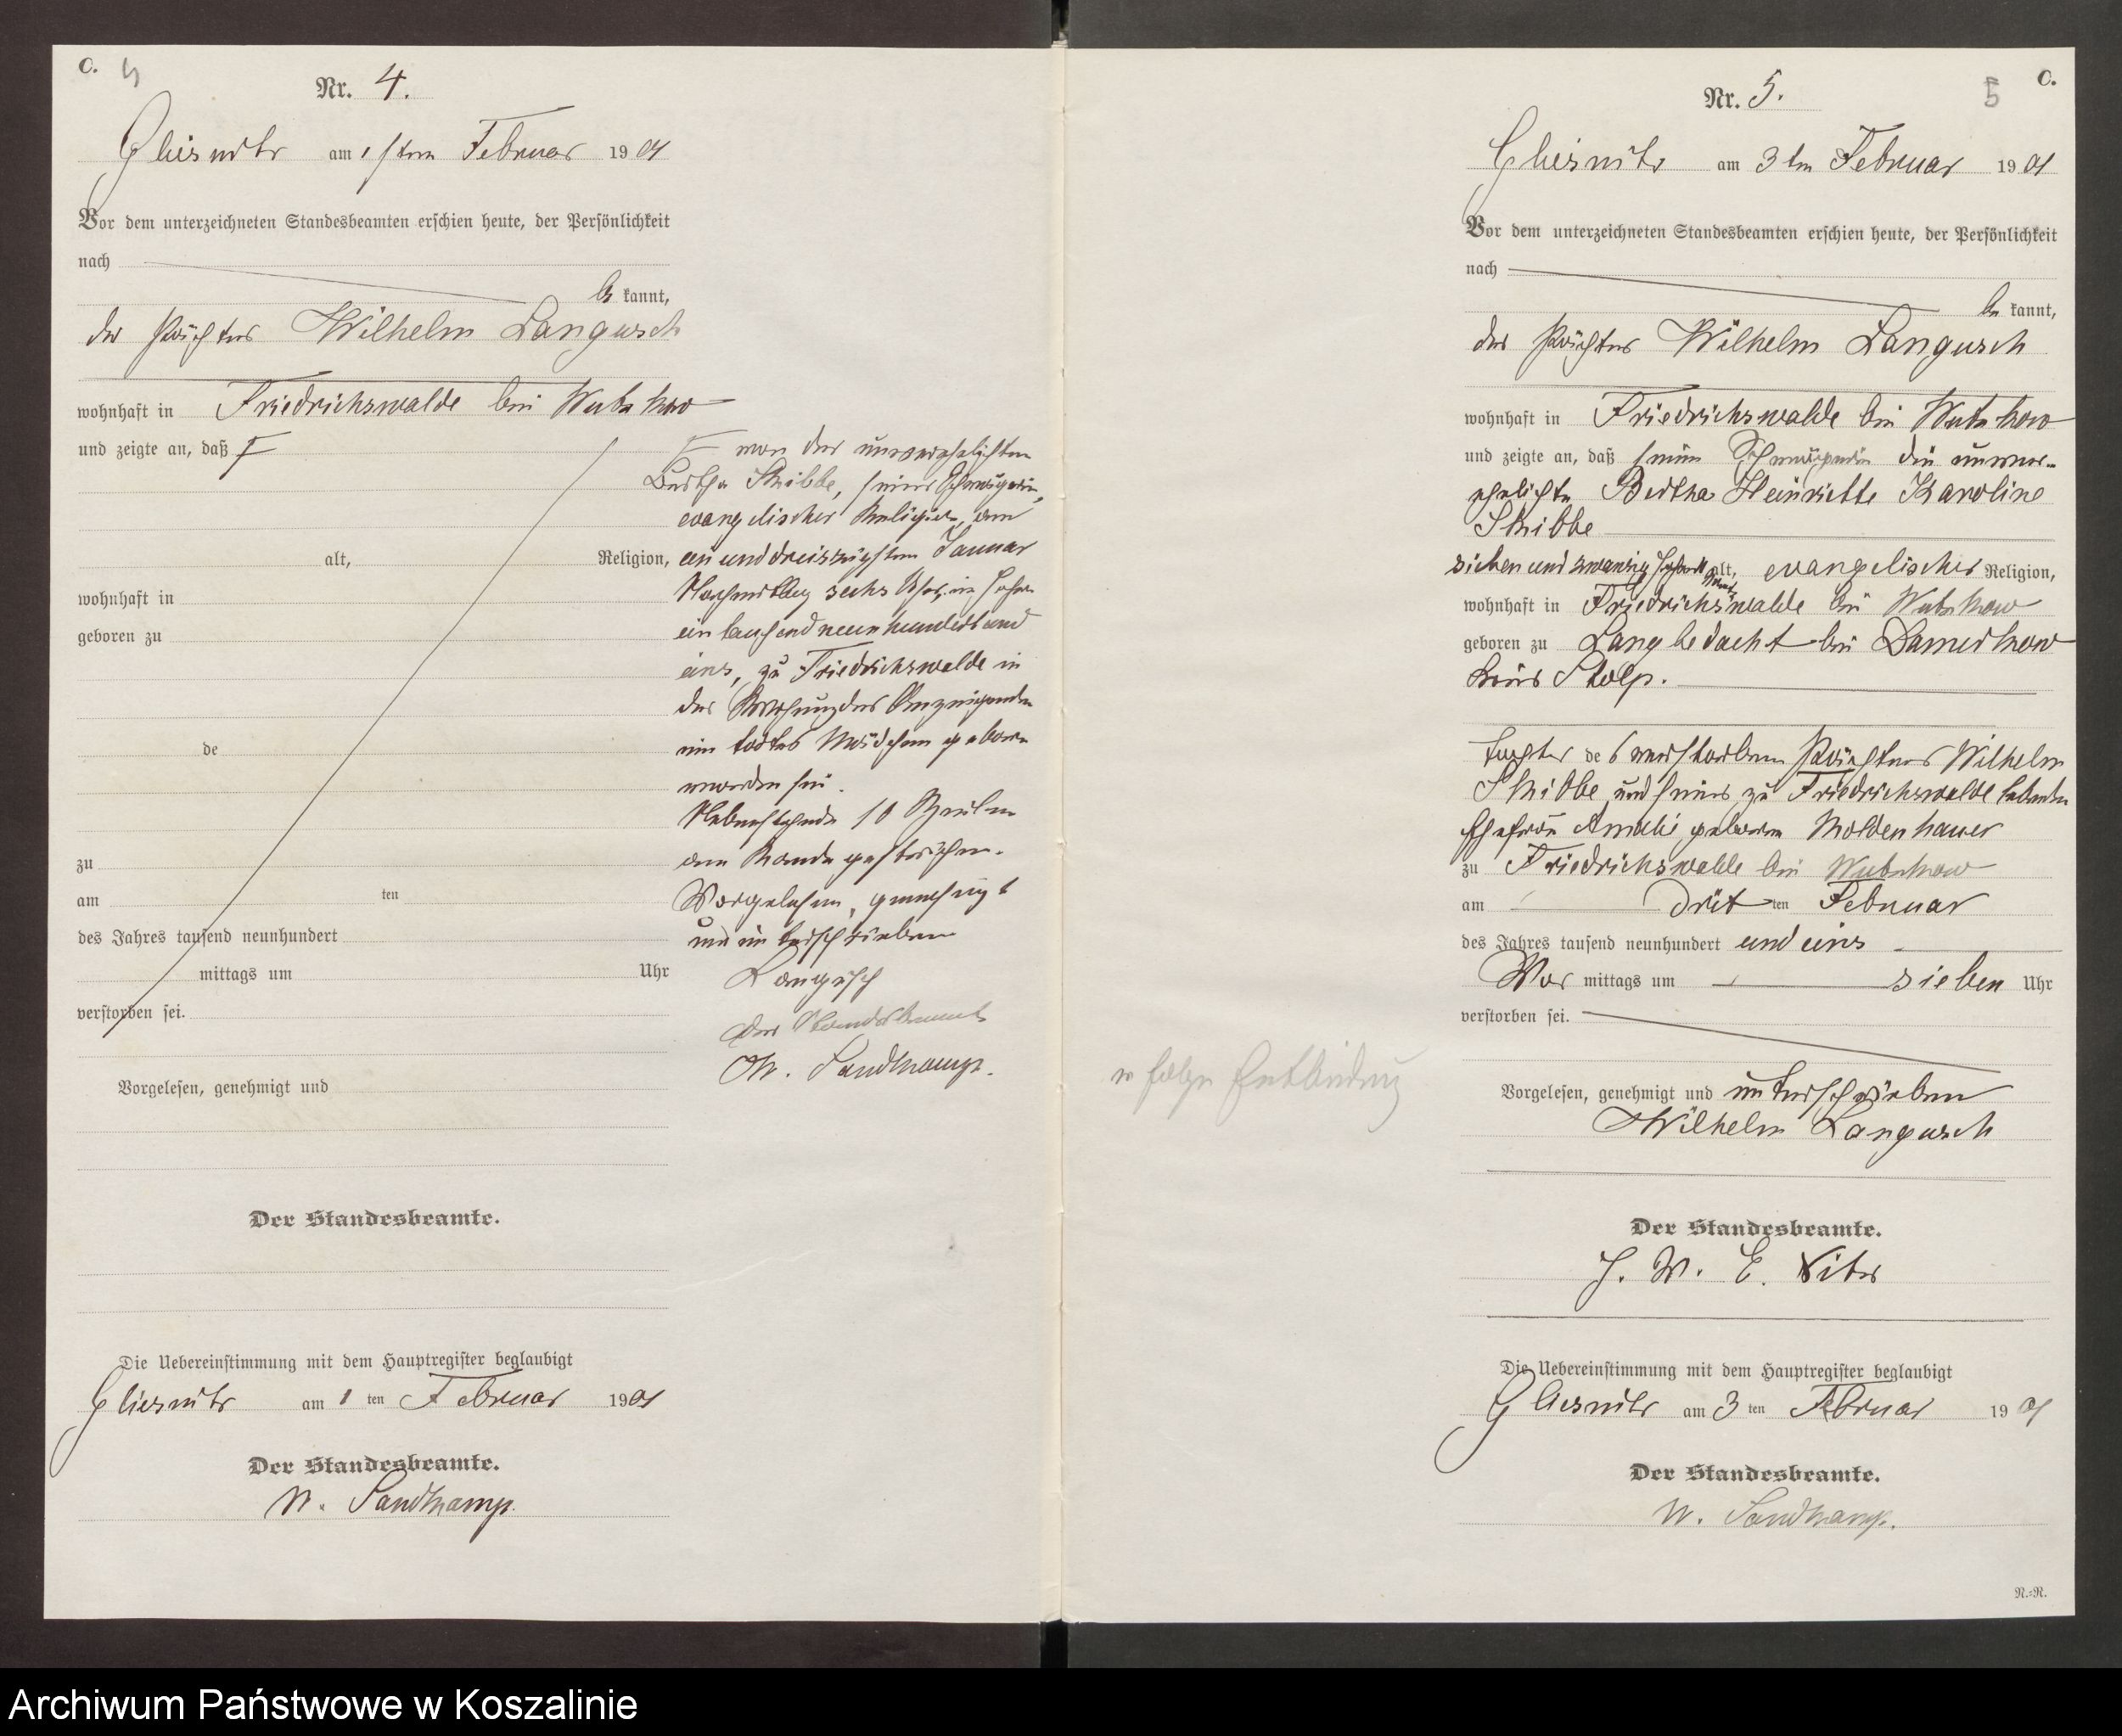 C. 4
Nr. 4.
Gliesnitz am 1sten Februar 1901
Vor dem unterzeichneten Standesbeamten erschien heute, der Persönlichkeit
nach
be kannt,
der Pächter Wilhelm Langusch
wohnhaft in Friedrichswalde bei Wutzkow
und zeigte an, daß
alt, Religion,
wohnhaft in
geboren zu
de
zu
am ten
des Jahres tausend neunhundert
mittags um Uhr
verstorben sei.
Vorgelesen, genehmigt und
von der unverehelichten
Bertha Skibbe, seiner Schwägerin,
evangelischer Religion, am
ein und dreiszigsten Januar
Nachmittag sechs Uhr, im Jahre
ein tausend neun hundert und
eins, zu Friedrichswalde in
der Wohnung des Anzeigenden
ein todtes Mädchen geboren
worden sei.
Nebenstehende 10 Zeilen
am Rande gestrichen.
Vorgelesen, genehmigt
und unterschrieben
Langusch
Der Standesbeamte
W. Sandkamp.
Der Standesbeamte.
Die Uebereinstimmung mit dem Hauptregister beglaubigt
Gliesnitz am 1 ten Februar 1901
Der Standesbeamte.
W. Sandkamp.
5 C.
Nr. 5.
Gliesnitz am 3ten Februar 1901
Vor dem unterzeichneten Standesbeamten erschien heute, der Persönlichkeit
nach
be kannt,
der Pächter Wilhelm Langusch
wohnhaft in Friedrichswalde bei Wutzkow
und zeigte an, daß seine Schwägerin die unver-
ehelichte Bertha Heinriette Karoline
Skibbe
sieben und zwanzig Jahre alt, evangelischer Religion,
wohnhaft in Friedrichswalde bei Wutzkow
geboren zu Langbedacht bei Damerkow
Kreis Stolp.
Tochter de s verstorbenen Pächters Wilhelm
Skibbe und seiner zu Friedrichswalde lebenden
Ehefrau Amalie geborene Moldenhauer
zu Friedrichswalde bei Wutzkow
am drit ten Februar
des Jahres tausend neunhundert und eins
Vor mittags um sieben Uhr
verstorben sei.
folge Entbindung
Vorgelesen, genehmigt und unterschrieben
Wilhelm Langusch
Der Standesbeamte.
J. W. E.
Die Uebereinstimmung mit dem Hauptregister beglaubigt
Gliesnitz am 3 ten Februar 1901
Der Standesbeamte.
W. Sandkamp.
N.=N.
Archiwum Państwowe w Koszalinie